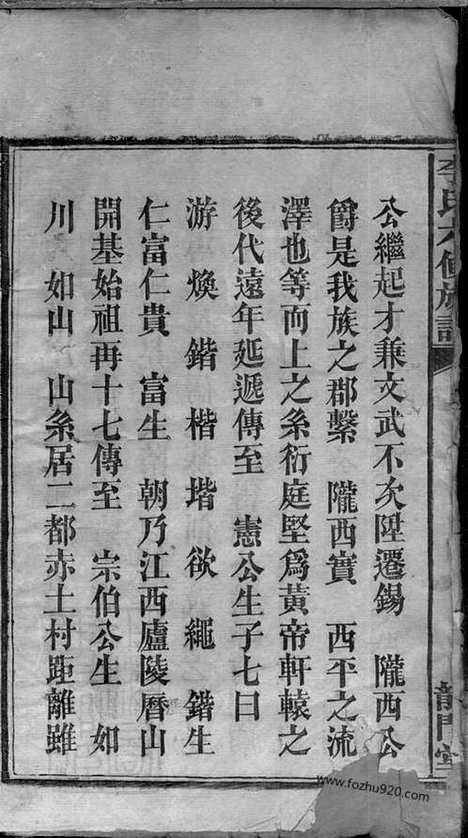 公繼起才兼文武不次陞遷錫　隴西公
爵是我族之郡繫　隴西實　西平之流
澤也等而上之系衍庭堅為黃帝軒轅之
後代遠年延遞傳至　憲公生子七曰
游　煥　鍇　楷　堦　欲　繩　鍇生
仁富仁貴　富生　朝乃江西廬陵曆山
開基始祖再十七傳至　宗伯公生　如
川　如山　山系居二都赤土村距離雖
李氏六修族譜
龍門堂
www.fozhu920.com